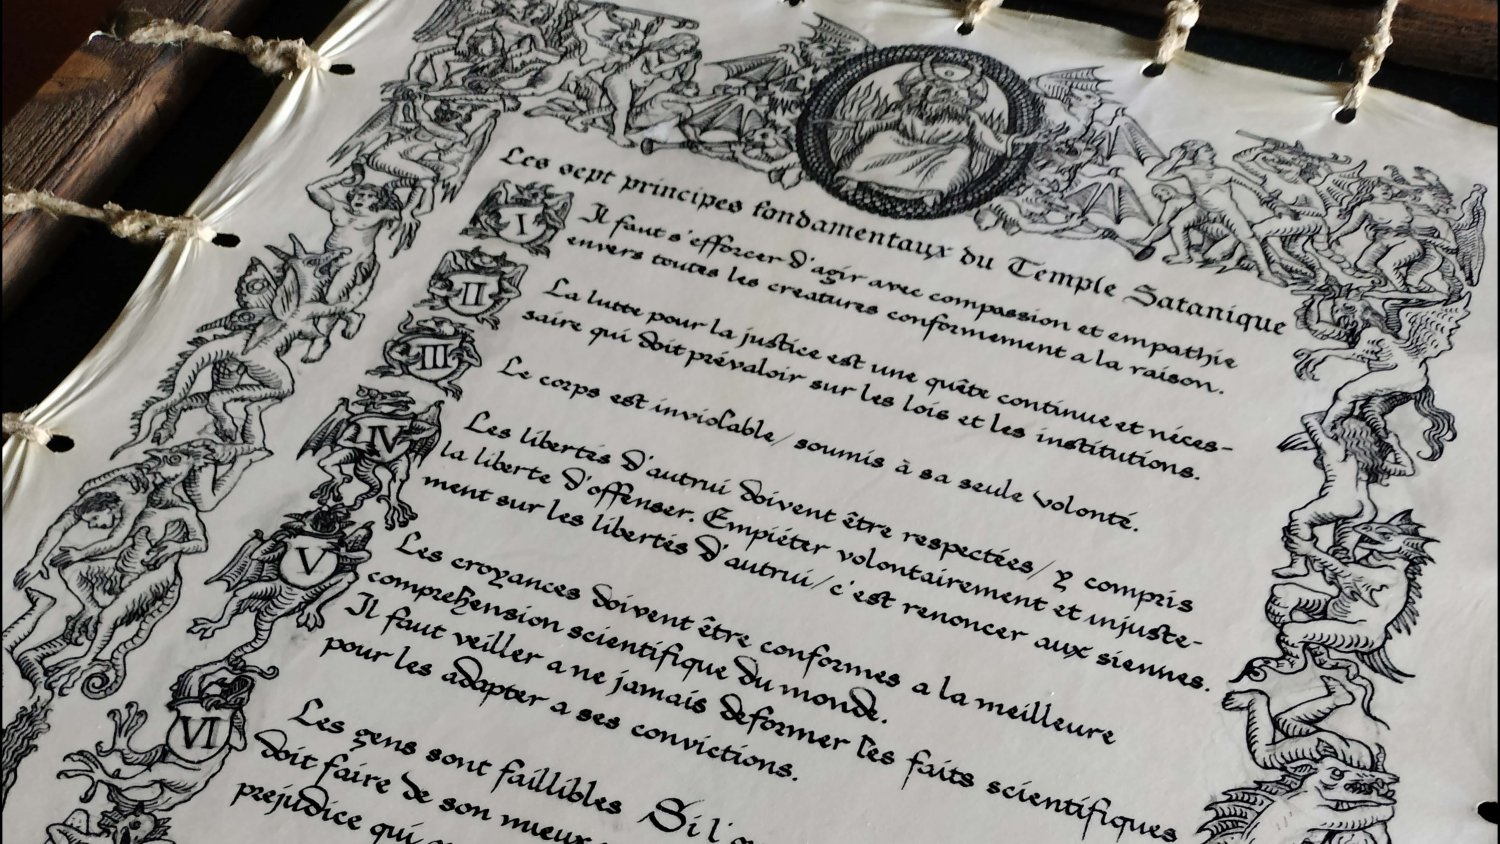 Les sept principes fondamentaux du Temple Satanique
I
Il faut s'efforcer d'agir avec compassion et empathie
envers toutes les creatures conformement a la raison.
II
La lutte pour la justice est une quête continue et néces-
saire qui doit prévaloir sur les lois et les institutions.
III
Le corps est inviolable/ soumis à sa seule volonté.
IV
Les libertés d'autrui doivent être respectées/ y compris
la liberte d'offenser. Empiéter volontairement et injuste-
ment sur les libertés d'autrui/ c'est renoncer aux siennes.
V
Les croyances doivent être conformes a la meilleure
comprehension scientifique du monde.
Il faut veiller a ne jamais deformer les faits scientifiques
pour les adapter a ses convictions.
VI
Les gens sont faillibles Si l'
doit faire de son mieux
prejudice qui